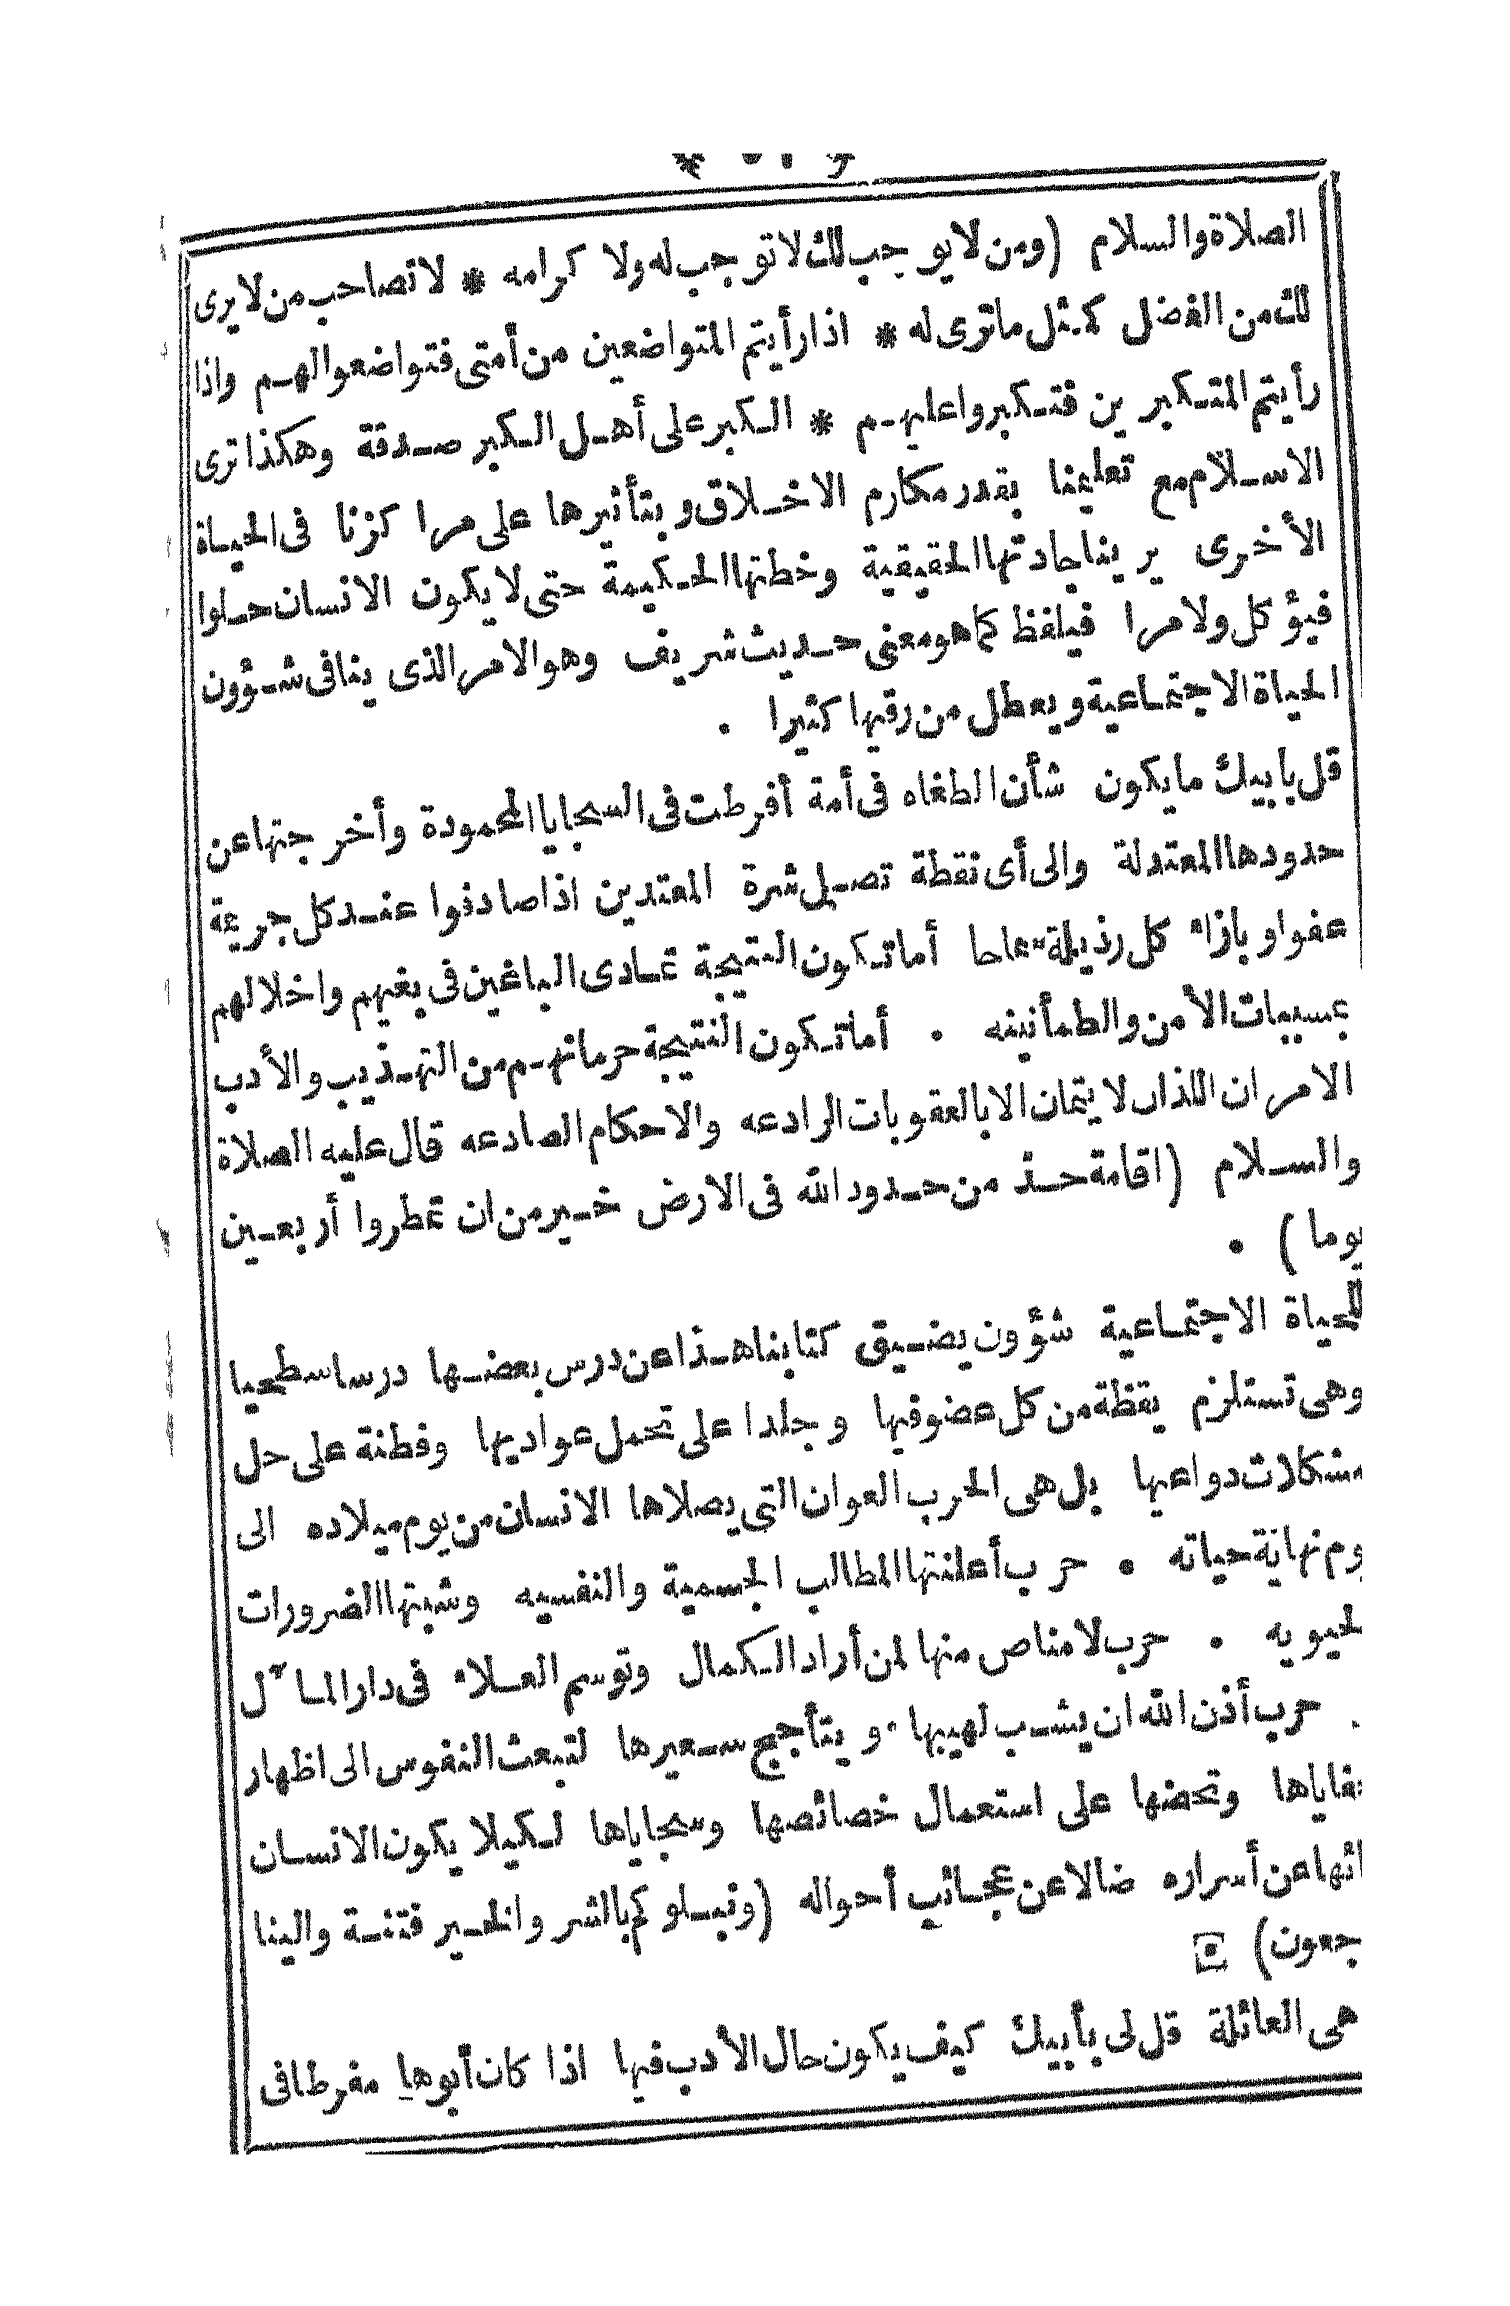 الصلاة والسلام (ومن لا يوجب لك لا توجب له ولا كرامه * لا تصاحب من لا يرى
لك من الفضل كمثل ما ترى له * اذا رأيتم المتواضعين من أمتى فتواضعوا لهم واذا
رأيتم المتكبرين فتكبروا عليهم * الكبر على أهل الكبر صدقة وهكذا ترى
الاسلام مع تعليمنا بقدر مكارم الاخلاق وبتأثيرها على مرا كزنا فى الحياة
الأخرى يرينا جادتها الحقيقية وخطتها الحكيمة حتى لا يكون الانسان حلوا
فيؤكل ولا مرا فيلفظ كما هو معنى حديث شريف وهو الامر الذى ينافى شؤون
الحياة الاجتماعية ويعطل من رقيها كثيرا .
قل بابيك ما يكون شأن الطغاه فى أمة أفرطت فى السجايا المحمودة وأخرجتها عن
حدودها المعتدلة والى أى نقطة تصل شرة المعتدين اذا صادفوا عند كل جريمة
عفوا وبازاء كل رذيلة سماحا أما تكون النتيجة تمادى الباغين فى بغيهم واخلالهم
بمسببات الأمن والطمأنينه . أما تكون النتيجة حرمانهم من التهذيب والأدب
الامران اللذان لا يتمان الا بالعقوبات الرادعه والاحكام الصادعه قال عليه الصلاة
والسلام (اقامة حد من حدود الله فى الارض خير من ان تمطروا أربعين
يوما) .
للحياة الاجتماعية شؤون يضيق كتابنا هذا عن درس بعضها درسا سطحيا
وهى تستلزم يقظة من كل عضو فيها وجلدا على تحمل عواديها وفطنة على حل
مشكلات دواعيها بل هى الحرب العوان التى يصلاها الانسان من يوم ميلاده الى
وم نهاية حياته . حرب أعلنتها المطالب الجسمية والنفسيه وشبتها الضرورات
لحيويه . حرب لا مناص منها لمن أراد الكمال وتوسم العلاء فى دار المآل
. حرب أذن الله ان يشب لهيبها . ويتأجج سعيرها لتبعث النفوس الى اظهار
فاياها وتحضها على استعمال خصائصها وسجاياها لكيلا يكون الانسان
ائها عن أسراره ضالا عن عجائب أحواله (ونبلوكم بالشر والخير فتنة والينا
جعون)
هى العائلة قل لى بأبيك كيف يكون حال الأدب فيها اذا كان أبوها مفرطا فى